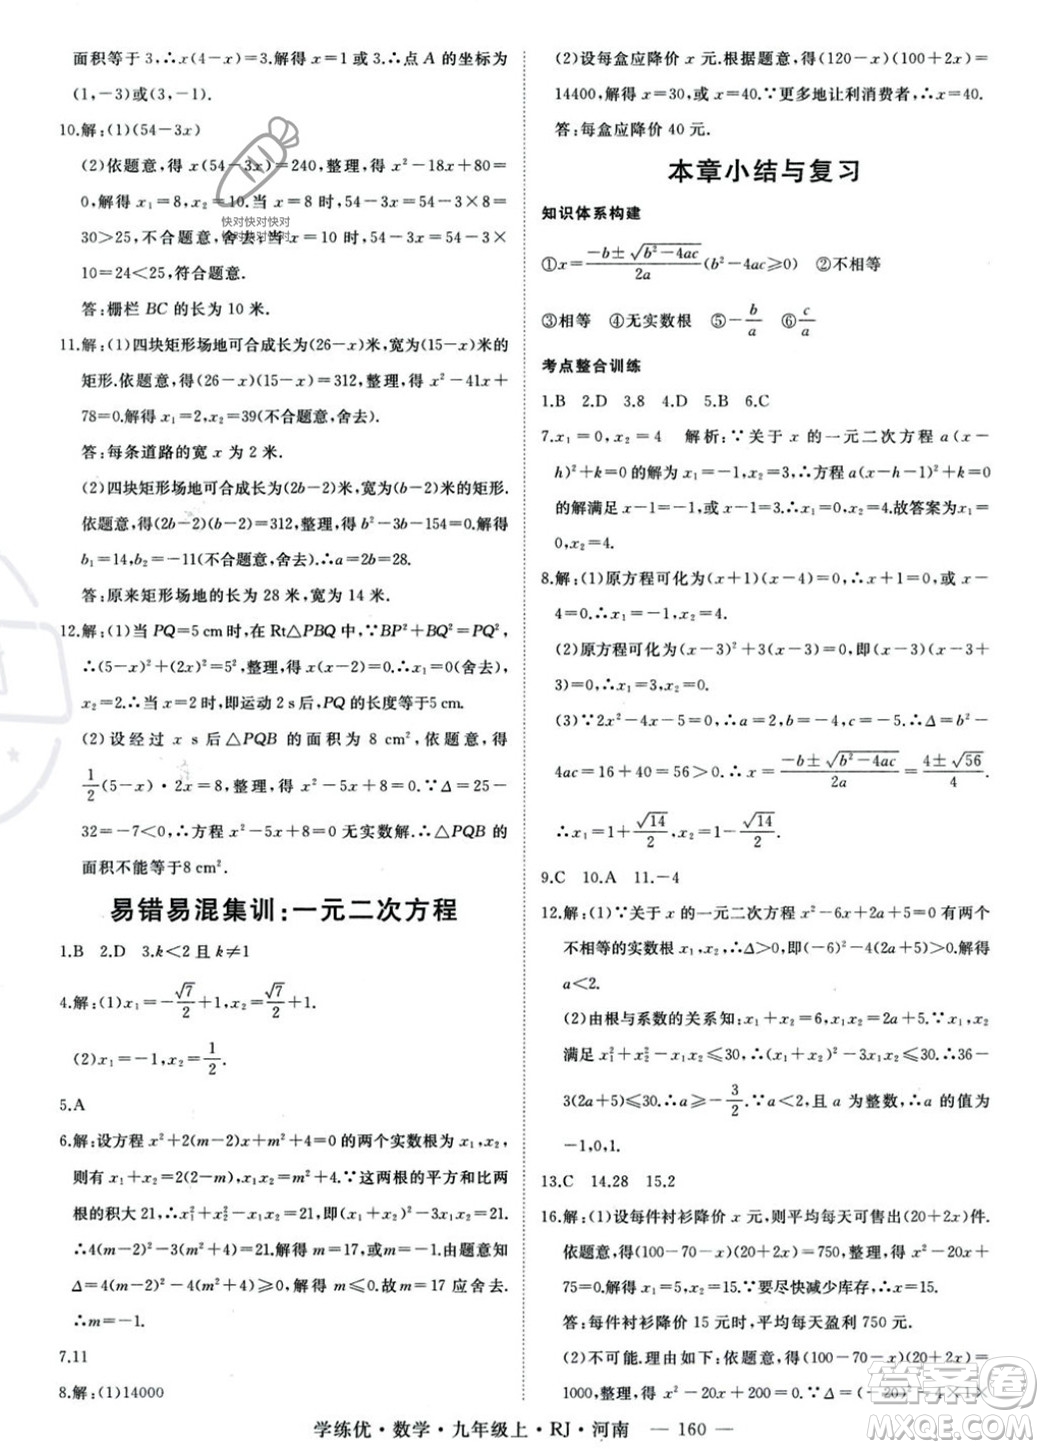 面积等于 3,∴x(4-x)=3.解得 x=1或 3.∴点 A 的坐标为
(1,-3)或(3,-1).
10.解:(1)(54-3x)
(2)依题意,得 x(54-3x)=240,整理,得 x²-18x+80=
0,解得 x₁=8,x₂=10.当 x=8 时,54-3x=54-3×8=
30>25,不合题意,舍去;当 x=10 时,54-3x=54-3×
10=24<25,符合题意.
答:栅栏 BC 的长为 10 米.
11.解:(1)四块矩形场地可合成长为(26-x)米,宽为(15-x)米的
矩形.依题意,得(26-x)(15-x)=312,整理,得 x²-41x+
78=0.解得 x₁=2,x₂=39(不合题意,舍去).
答:每条道路的宽 x 为 2 米.
(2)四块矩形场地可合成长为(2b-2)米,宽为(b-2)米的矩形.
依题意,得(2b-2)(b-2)=312,整理,得 b²-3b-154=0.解得
b₁=14,b₂=-11(不合题意,舍去).∴a=2b=28.
答:原来矩形场地的长为 28 米,宽为 14 米.
12.解:(1)当 PQ=5 cm时,在 Rt△PBQ 中,∵BP²+BQ²=PQ²,
∴(5-x)²+(2x)²=5²,整理,得 x²-2x=0.解得 x₁=0(舍去),
x₂=2.∴当 x=2时,即运动 2 s 后,PQ 的长度等于5 cm.
(2)设经过 x s 后△PQB 的面积为 8 cm²,依题意,得
1/2(5-x)·2x=8,整理,得 x²-5x+8=0.∵Δ=25-
32=-7<0,∴方程 x²-5x+8=0 无实数解.∴△PQB 的
面积不能等于8 cm².
易错易混集训:一元二次方程
1.B 2.D 3.k<2 且 k≠1
4.解:(1)x₁=-√7/2+1,x₂=√7/2+1.
(2)x₁=-1,x₂=1/2.
5.A
6.解:设方程 x²+2(m-2)x+m²+4=0 的两个实数根为 x₁,x₂,
则有 x₁+x₂=2(2-m),x₁x₂=m²+4.∵这两根的平方和比两
根的积大 21,∴x₁²+x₂²-x₁x₂=21,即(x₁+x₂)²-3x₁x₂=21,
∴4(m-2)²-3(m²+4)=21,解得 m=17 或-1.由题意可知
Δ=4(m-2)²-4(m²+4)≥0,解得 m≤0.故 m=17 应舍去.
∴m=-1.
7.11
8.解:(1)14000
(2)设每盒应降价 x 元.根据题意,得(120-x)(100+2x)=
14400,解得 x=30,x=40.∵更多地让利消费者,∴x=40.
答:每盒应降价 40 元.
本章小结与复习
知识体系构建
①x=(-b±√(b²-4ac))/2a(b²-4ac≥0) ②不相等
③相等 ④无实数根 ⑤-b/a ⑥c/a
考点整合训练
1.B 2.D 3.8 4.D 5.B 6.C
7.x₁=0,x₂=4 解析:∵关于 x 的一元二次方程 a(x-
h)²+k=0 的解为 x₁=-1,x₂=3,∴方程 a(x-h-1)²+k=0
的解满足 x-1=-1,或 x-1=3.∴x₁=0,x₂=4.故答案为x₁=
0,x₂=4.
8.解:(1)原方程可化为(x+1)(x-4)=0,∴x+1=0,或 x-
4=0.∴x₁=-1,x₂=4.
(2)原方程可化为(x-3)²+3(x-3)=0,即(x-3)(x-3+
3)=0,∴x-3=0,或 x=0.∴x₁=3,x₂=0.
(3)∵2x²-4x-5=0,∴a=2,b=-4,c=-5.∴Δ=b²-
4ac=16+40=56>0.∴x=(-b±√(b²-4ac))/2a=(4±√56)/4.
∴x₁=1+√14/2,x₂=1-√14/2.
9.C 10.A 11.-4
12.解:(1)∵关于 x 的一元二次方程 x²-6x+2a+5=0 有两个
不相等的实数根 x₁,x₂,∴Δ>0,即(-6)²-4(2a+5)>0.解得
a<2.
(2)由根与系数的关系知:x₁+x₂=6,x₁x₂=2a+5.∵x₁,x₂
满足 x₁²+x₂²-x₁x₂≤30,∴(x₁+x₂)²-3x₁x₂≤30,∴36-
3(2a+5)≤30.∴a≥-3/2.∵a<2,且 a 为整数,∴a 的值为
-1,0,1.
13.C 14.28 15.2
16.解:(1)设每件衬衫降价 x 元,则平均每天可售出(20+2x)件.
依题意,得(100-70-x)(20+2x)=750,整理,得 x²-20x+
75=0.解得 x₁=5,x₂=15.∵要尽快减少库存,∴x=15.
答:每件衬衫降价 15 元时,平均每天盈利 750 元.
(2)不可能.理由如下:依题意,得(100-70-x)(20+2x)=
1000,整理,得 x²-20x+200=0.∵Δ=(-20)²-4×1×
学练优·数学·九年级上·RJ·河南 — 160 —
快对快对快对
快对快对快对